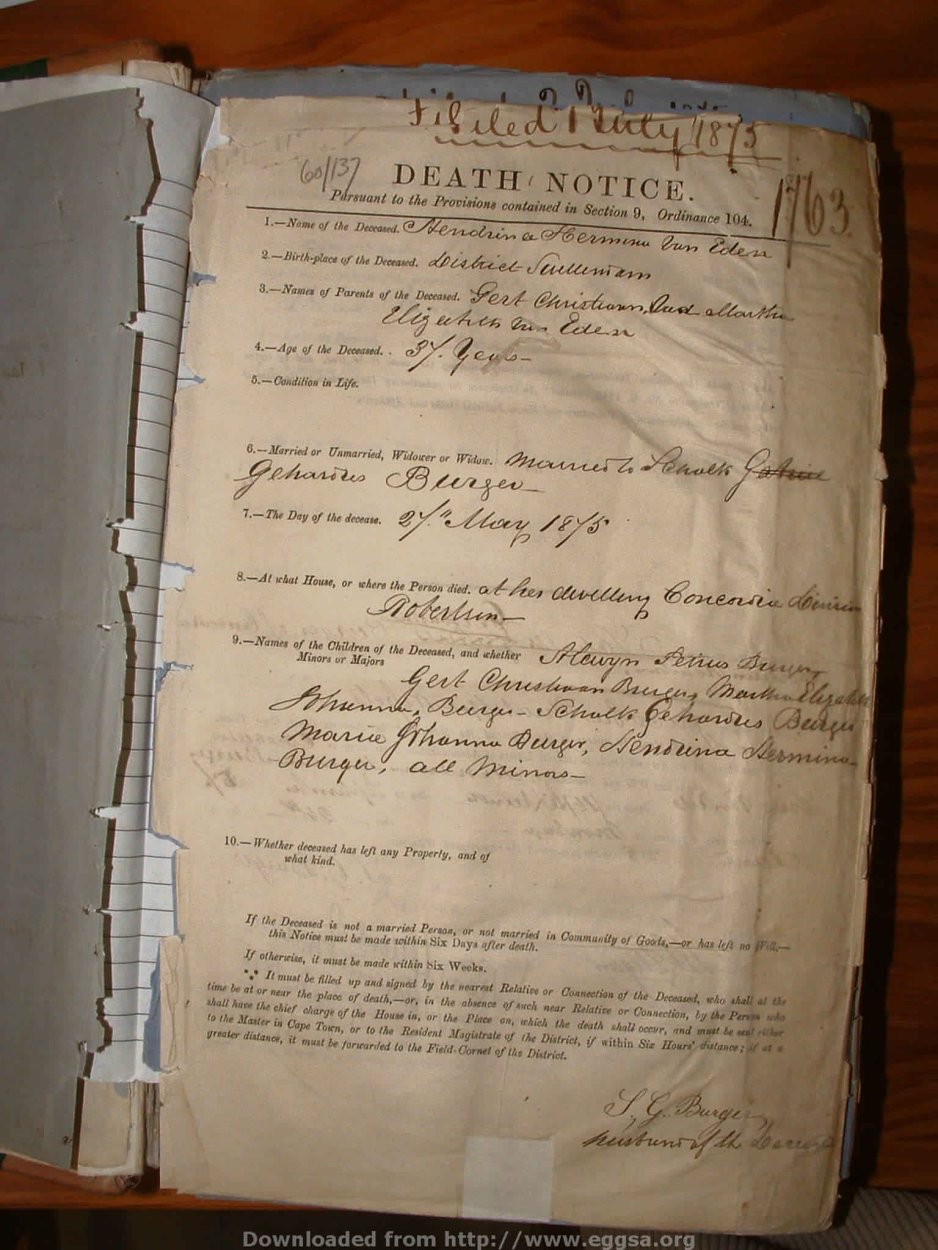 Filed 1 July 1875
60/137
DEATH NOTICE.
1763.
Pursuant to the Provisions contained in Section 9, Ordinance 104.
1.—Name of the Deceased. Hendrina Hermina Van Eden
2.—Birth-place of the Deceased. District Swellendam
3.—Names of Parents of the Deceased. Gert Christiaan, and Martha
Elizabeth van Eden
4.—Age of the Deceased. . 37. Years—
5.—Condition in Life.
6.—Married or Unmarried, Widower or Widow. Married to Schalk
Gehardus Burger—
7.—The Day of the decease. 27th May 1875
8.—At what House, or where the Person died. at her dwelling Concordia Division
Robertson—
9.—Names of the Children of the Deceased, and whether Alewyn Petrus Burger,
Minors or Majors
Gert Christiaan Burger, Martha Elizabeth
Johanna, Burger— Schalk Gehardus Burger
Maria Johanna Burger, Hendrina Hermina
Burger, all Minors—
10.—Whether deceased has left any Property, and of
what kind.
If the Deceased is not a married Person, or not married in Community of Goods,—or has left no Will,—
this Notice must be made within Six Days after death.
If otherwise, it must be made within Six Weeks.
*** It must be filled up and signed by the nearest Relative or Connection of the Deceased, who shall at the
time be at or near the place of death,—or, in the absence of such near Relative or Connection, by the Person who
shall have the chief charge of the House in, or the Place on, which the death shall occur, and must be sent either
to the Master in Cape Town, or to the Resident Magistrate of the District, if within Six Hours' distance; if at a
greater distance, it must be forwarded to the Field-Cornet of the District.
S. G. Burger
husband of the Deceased
Downloaded from http://www.eggsa.org